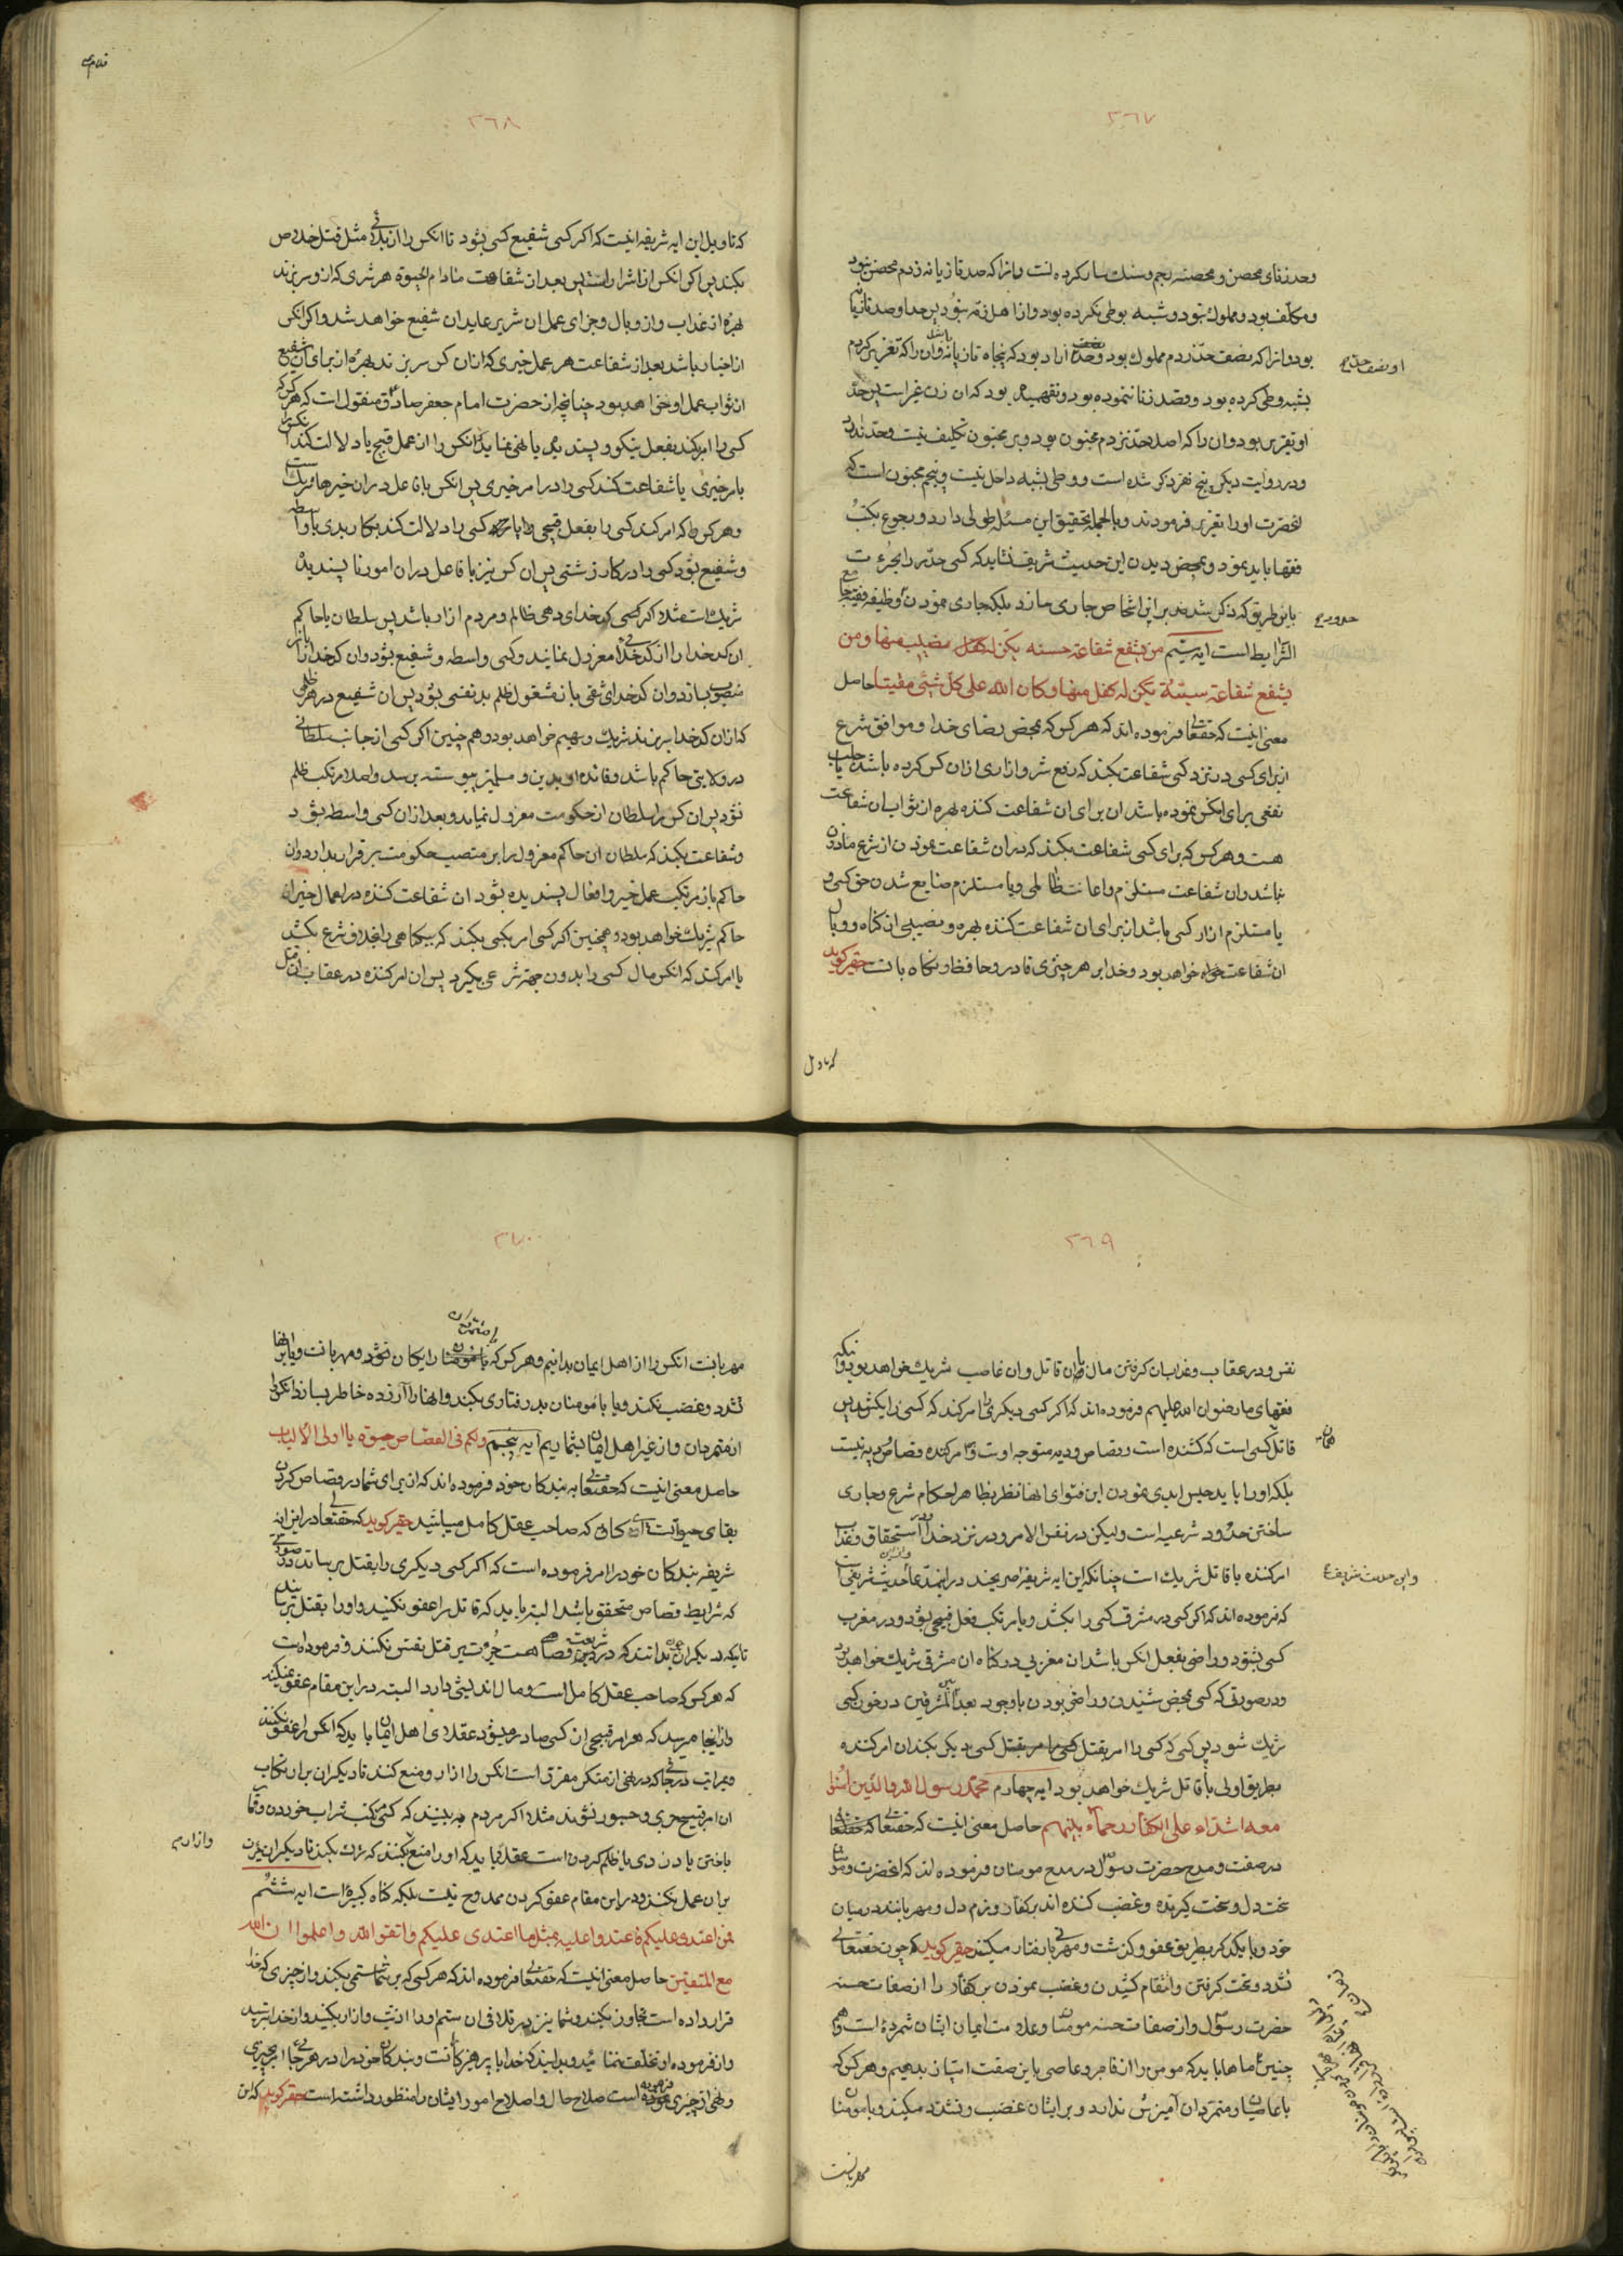 ٣٦٧
وحد زنای محصن و محصنه رجم و سنک سار کرده است و انرا که صد تازیانه زدم محصن نبود
و مکلف بود و مملوک نبود و شبهه بوطی نکرده بود و از اهل ذمه نبود پس حد او صد تازیانه
بود و انرا که نصف حد زدم مملوک بود و حد نصف ازاد بود که پنجاه تازیانه باشد و ان را که تعزیر کردم
بشبهه وطی کرده بود و قصد زنا ننموده بود و نفهمیده بود که ان زن غیر است پس حد
او تعزیر بود و ان را که اصلا حد نزدم مجنون بود و بر مجنون تکلیف نیست و حد ندارد
و در روایت دیکر پنج نفر ذکر شده است و وطی بشبهه داخل نیست و پنجم مجنون است که
انحضرت او را تعزیر فرمودند و بالجمله تحقیق این مسئله طولی دارد و رجوع بکتب
فقها باید نمود و بمحض دیدن این حدیث شریف نشاید که کسی حد را بجرءت
باین طریق که ذکر شد بر این اشخاص جاری سازد بلکه جاری نمودن وظیفه فقیه جامع
الشرایط است ایه سیم من یشفع شفاعة حسنه یکن له نصیب منها و من
یشفع شفاعة سیئة یکن له کفل منها و کان الله علی کل شیئ مقیتا حاصل
معنی اینست که حقتعالی فرموده اند که هر کس که محض رضای خدا و موافق شرع
از برای کسی در نزد کسی شفاعت بکند که رفع شر و ازاری ازان کس کرده باشد یا جلب
نفعی برای انکس نموده باشد ان برای ان شفاعت کننده بهره از ثواب ان شفاعت
هست و هر کس که برای کسی شفاعت بکند که در ان شفاعت نمودن از شرع ماذون
نباشد و ان شفاعت مستلزم و اعانت ظالمی و یا مستلزم ضایع شدن حق کسی و
یا مستلزم ازار کسی باشد از برای ان شفاعت کننده بهره و نصیبی از کناه و وبال
ان شفاعت خواه خواهد بود و خدا بر هر چیزی قادر و حافظ و نکاه بانست حقیر کوید
که تاویل
٣٦٨
که تاویل این ایه شریفه اینست که اکر کسی شفیع کسی بشود تا انکس را از بلائی مثل قتل خلاص
بکند پس اکر انکس از اشرار است پس بعد از شفاعت مادام الحیوة هر شری که از او سر بزند
بهره از عذاب و از وبال و جزای عمل ان شریر عاید ان شفیع خواهد شد و اکر انکس
از اخیار باشد بعد از شفاعت هر عمل خیری که از ان کس سر بزند بهره از برای ان شفیع
از ثواب عمل او خواهد بود چنانچه از حضرت امام جعفر صادق منقول است که هر کس که
کسی را امر کند بفعل نیکو و پسندیده یا نهی نماید انکس را از عمل قبیح یا دلالت کند
بامر خیری یا شفاعت کند کسی را در امر خیری پس انکس با فاعل در ان خیرها شریک است
و هر کس که امر کند کسی را بفعل قبیحی و یا کسی را دلالت کند بکار بدی یا واسطه
و شفیع بشود کسی را در کار زشتی پس ان کس نیز با فاعل در ان امور ناپسندیده
شریک است مثلا اکر کسی کدخدای دهی ظالم و مردم ازار باشد پس سلطان یا حاکم
ان کدخدا را از کدخدائی معزول نمایند و کسی واسطه و شفیع بشود و ان کدخدا را باز
منصوب سازد و ان کدخدای شقی باز مشغول ظلم بد نفسی بشود پس ان شفیع در هر ظلمی
که از ان کدخدا سر بزند شریک و سهیم خواهد بود و هم چنین اکر کسی از جانب سلطانی
در ولایتی حاکم باشد و فائده او بدین و مسلمین پیوسته برسد و اصلا مرتکب ظلم
نشود پس ان کس را سلطان از حکومت معزول نماید و بعد از ان کسی واسطه بشود
و شفاعت بکند که سلطان ان حاکم معزول را بر منصب حکومت برقرار بدارد و ان
حاکم باز مرتکب عمل خیر و افعال پسندیده بشود ان شفاعت کننده در اعمال خیر ان
حاکم شریک خواهد بود و همچنین اکر کسی امر بکسی بکند که بیکناهی را بخلاف شرع بکشد
یا امر کند که انکس مال کسی را بدون جهة شرعی بکیرد پس ان امر کننده در عقاب ان قتل
٣٦٩
نفس و در عقاب و عذاب ان کرفتن مال با ان قاتل و ان غاصب شریک خواهد بود و انکه
فقهای ما رضوان الله علیهم فرموده اند که اکر کسی دیکری را امر کند که کسی را بکشد پس
قاتل کسی است که کشنده است و قصاص و دیه متوجه اوست و بر امر کننده قصاص و دیه نیست
بلکه او را باید حبس ابدی نمودن این فتوای انها نظر بظاهر احکام شرع و جاری
ساختن حدود شرعیه است ولیکن در نفس الامر و در نزد خدا در استحقاق و عذاب
امر کننده با قاتل شریک است چنانکه این ایه شریفه صریحند در این مدعا و این حدیث شریف است
که فرموده اند که اکر کسی در مشرق کسی را بکشد و یا مرتکب فعل قبیحی بشود و در مغرب
کسی بشنود و راضی بفعل انکس باشد ان مغربی در کناه ان مشرقی شریک خواهد بود
و در صورتی که کسی بمحض شنیدن و راضی بودن با وجود بعد المشرقین در خون کسی
شریک شود پس کسی که کسی را امر بقتل کسی دیکر بکند ان امر کننده
بطریق اولی با قاتل شریک خواهد بود ایه چهارم محمد رسول الله والذین امنوا
معه اشداء علی الکفار رحماء بینهم حاصل معنی اینست که حقتعالی
در صفت و مدح حضرت رسول و در مدح مومنان فرموده اند که انحضرت و مومنان
سخت دل و سخت کیرنده و غضب کننده اند بر کفار و نرم دل و مهربانند در میان
خود و با یکدکر بطریق عفو و کذشت و مهربانی رفتار میکنند حقیر کوید که چون حقتعالی
تشدد و سخت کرفتن و انتقام کشیدن و غضب نمودن بر کفار را از صفات حسنه
حضرت رسول و از صفات حسنه مومنان و علامت ایمان ایشان شمرده است
چنین ماها باید که مومن را از فاجر و عاصی باین صفت امتیاز بدهیم و هر کس که
با عاصیان و متمردان آمیزش ندارد و بر ایشان غضب و تشدد میکند و با مومنان
مهربانست
٣٧٠
مهربانست انکس را از اهل ایمان بدانیم و هر کس که با متمردان یکان نشود و مهربانست و یا بر انها
تشدد و غضب نکند و یا با مومنان بدرفتاری بکند و انها را آزرده خاطر بسازد انکس را
از متمردان و از غیر اهل ایمان بشماریم ایه پنجم ولکم فی القصاص حیوة یا اولی الالباب
حاصل معنی اینست که حقتعالی به بندکان خود فرموده اند که از برای شما در قصاص کردن
بقای حیوتست ای کسان که صاحب عقل کامل میباشید حقیر کوید که حقتعالی در این ایه
شریفه بندکان خود را امر فرموده است که اکر کسی دیکری را بقتل برساند در صورتی
که شرایط قصاص متحقق باشد البته باید که قاتل را عفو نکنید و او را بقتل برسانید
تا یکه دیکران بدانند که در شریعت قصاص هست جرءت بر قتل نفس نکنند و فرموده است
که هر کس که صاحب عقل کامل است و مال اندیشی دارد البته در این مقام عفو نمیکند
و از اینجا میرسد که هر امر قبیحی از کسی صادر میشود عقلا و اهل ایمان باید که انکس را عفو نکنند
ان امر قبیح جری و جسور نشوند مثلا اکر مردم به بینند که کسی مرتکب شراب خوردن و قمار
باختن یا دزدی یا ظلم کردن است عقلا باید که او را منع بکنند که ترک بکند تا دیکران جرءت
بر ان عمل نکنند و در این مقام عفو کردن ممدوح نیست بلکه کناه کبیره است ایه ششم
فمن اعتدی علیکم فاعتدوا علیه بمثل ما اعتدی علیکم واتقوا الله واعلموا ان الله
مع المتقین حاصل معنی اینست که حقتعالی فرموده اند که هر کسی که بر شما ستمی بکند و از چیزی که خدا
قرار داده است تجاوز بکند و شما نیز در تلافی ان ستم او را اذیت و ازار بکنید و از خدا بترسید
و از فرموده او تخلف ننمائید و بدانید که خدا با پرهیزکارانست و بندکان خود را در هر جائی امر بچیزی
و نهی از چیزی فرموده است صلاح حال و اصلاح امور ایشان را منظور داشته است حقیر کوید که این